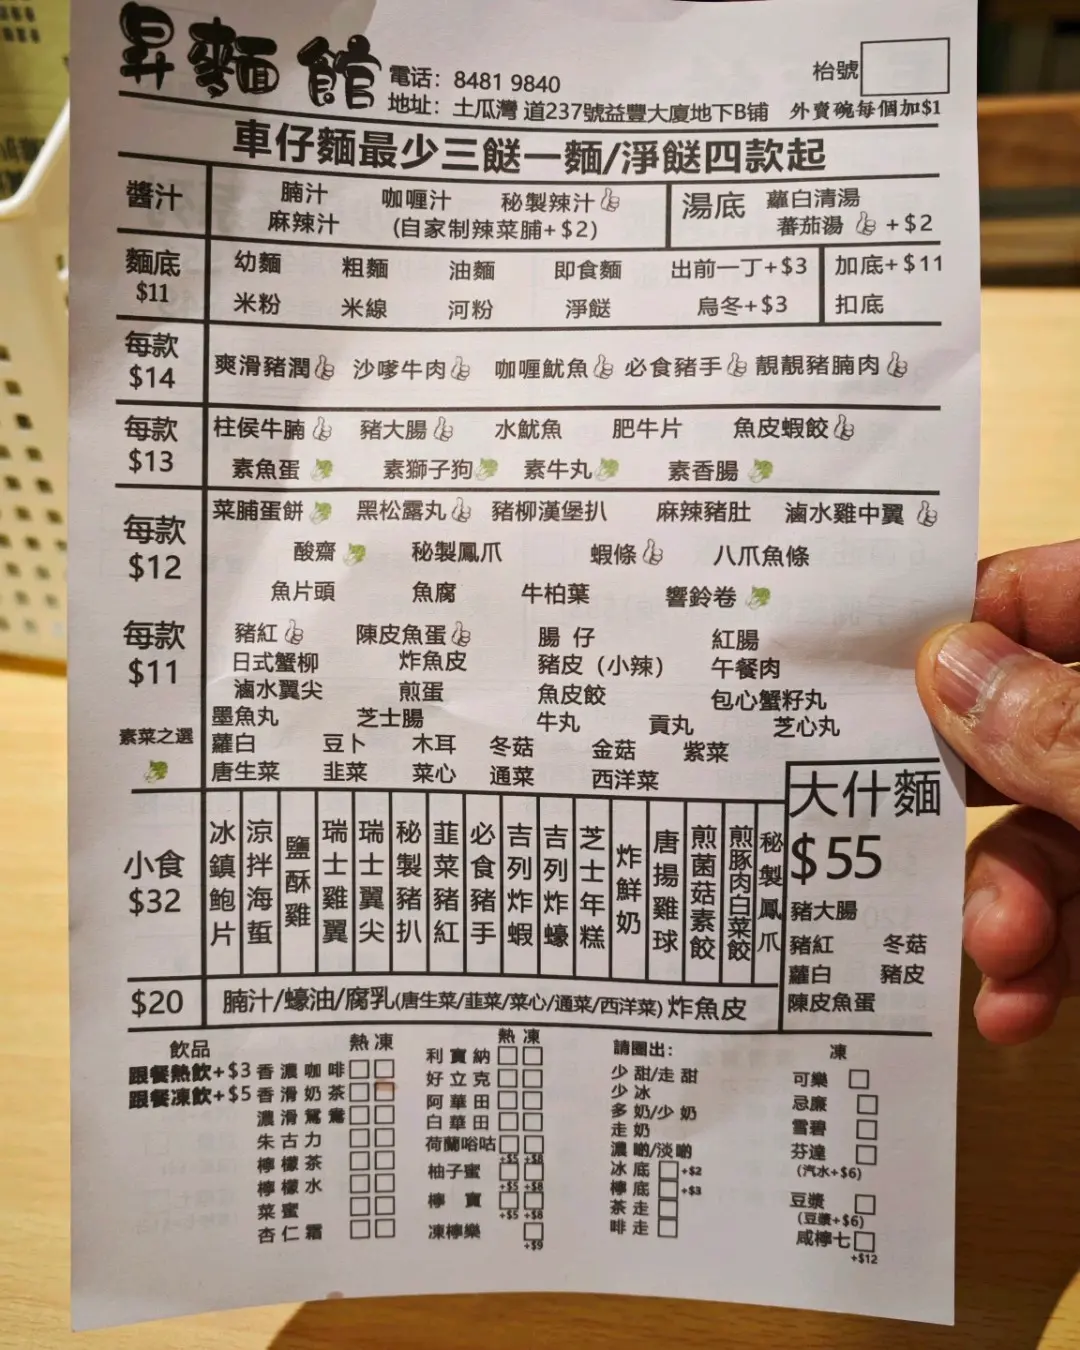 昇麵館
電话：8481 9840
地址：土瓜灣 道237號益豐大廈地下B铺
枱號
外賣碗每個加$1
車仔麵最少三餸一麵/淨餸四款起
醬汁
腩汁 咖喱汁 秘製辣汁
麻辣汁 (自家制辣菜脯+$2)
湯底
蘿白清湯
蕃茄湯 +$2
麵底
$11
幼麵 粗麵 油麵 即食麵 出前一丁+$3
米粉 米線 河粉 淨餸 烏冬+$3
加底+$11
扣底
每款
$14
爽滑豬潤 沙嗲牛肉 咖喱魷魚 必食豬手 靚靚豬腩肉
每款
$13
柱侯牛腩 豬大腸 水魷魚 肥牛片 魚皮蝦餃
素魚蛋 素獅子狗 素牛丸 素香腸
每款
$12
菜脯蛋餅 黑松露丸 豬柳漢堡扒 麻辣豬肚 滷水雞中翼
酸齋 秘製鳳爪 蝦條 八爪魚條
魚片頭 魚腐 牛柏葉 響鈴卷
每款
$11
豬紅 陳皮魚蛋 腸 仔 紅腸
日式蟹柳 炸魚皮 豬皮（小辣） 午餐肉
滷水翼尖 煎蛋 魚皮餃 包心蟹籽丸
墨魚丸 芝士腸 牛丸 貢丸 芝心丸
素菜之選
蘿白 豆卜 木耳 冬菇 金菇 紫菜
唐生菜 韭菜 菜心 通菜 西洋菜
小食
$32
冰鎮鮑片
涼拌海蜇
鹽酥雞
瑞士雞翼
瑞士翼尖
秘製豬扒
韭菜豬紅
必食豬手
吉列炸蝦
吉列炸蠔
芝士年糕
炸鮮奶
唐揚雞球
煎菌菇素餃
煎豚肉白菜餃
秘製鳳爪
大什麵
$55
豬大腸
豬紅 冬菇
蘿白 豬皮
陳皮魚蛋
$20
腩汁/蠔油/腐乳(唐生菜/韭菜/菜心/通菜/西洋菜) 炸魚皮
飲品
跟餐熱飲+$3
跟餐凍飲+$5
熱 凍
香濃咖啡
香滑奶茶
濃滑鴛鴦
朱古力
檸檬茶
檸檬水
菜蜜
杏仁霜
熱 凍
利賓納
好立克
阿華田
白華田
荷蘭哈咕
+$5 +$8
柚子蜜
+$5 +$8
檸 寶
+$5 +$8
凍檸樂
+$9
請圈出：
少甜/走甜
少冰
多奶/少奶
走奶
濃啲/淡啲
冰底 +$2
檸底 +$3
茶走
啡走
凍
可樂
忌廉
雪碧
芬達
(汽水+$6)
豆漿
(豆漿+$6)
咸檸七
+$12